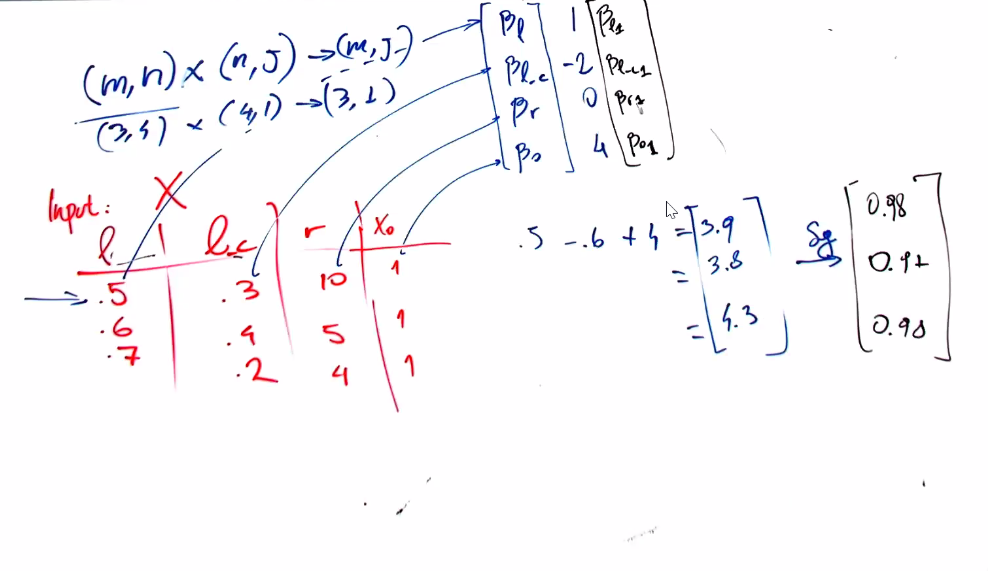 (m,n) × (n,J) → (m,J)
(3,4) × (4,1) → (3,1)
βl 1 βl1
βl_c -2 βl_c1
βr 0 βr1
β0 4 β01
Input: X
l l_c r X0
.5 .3 10 1
.6 .4 5 1
.7 .2 4 1
.5 - .6 + 4 = 3.9
= 3.8
= 4.3
Sg
0.98
0.98